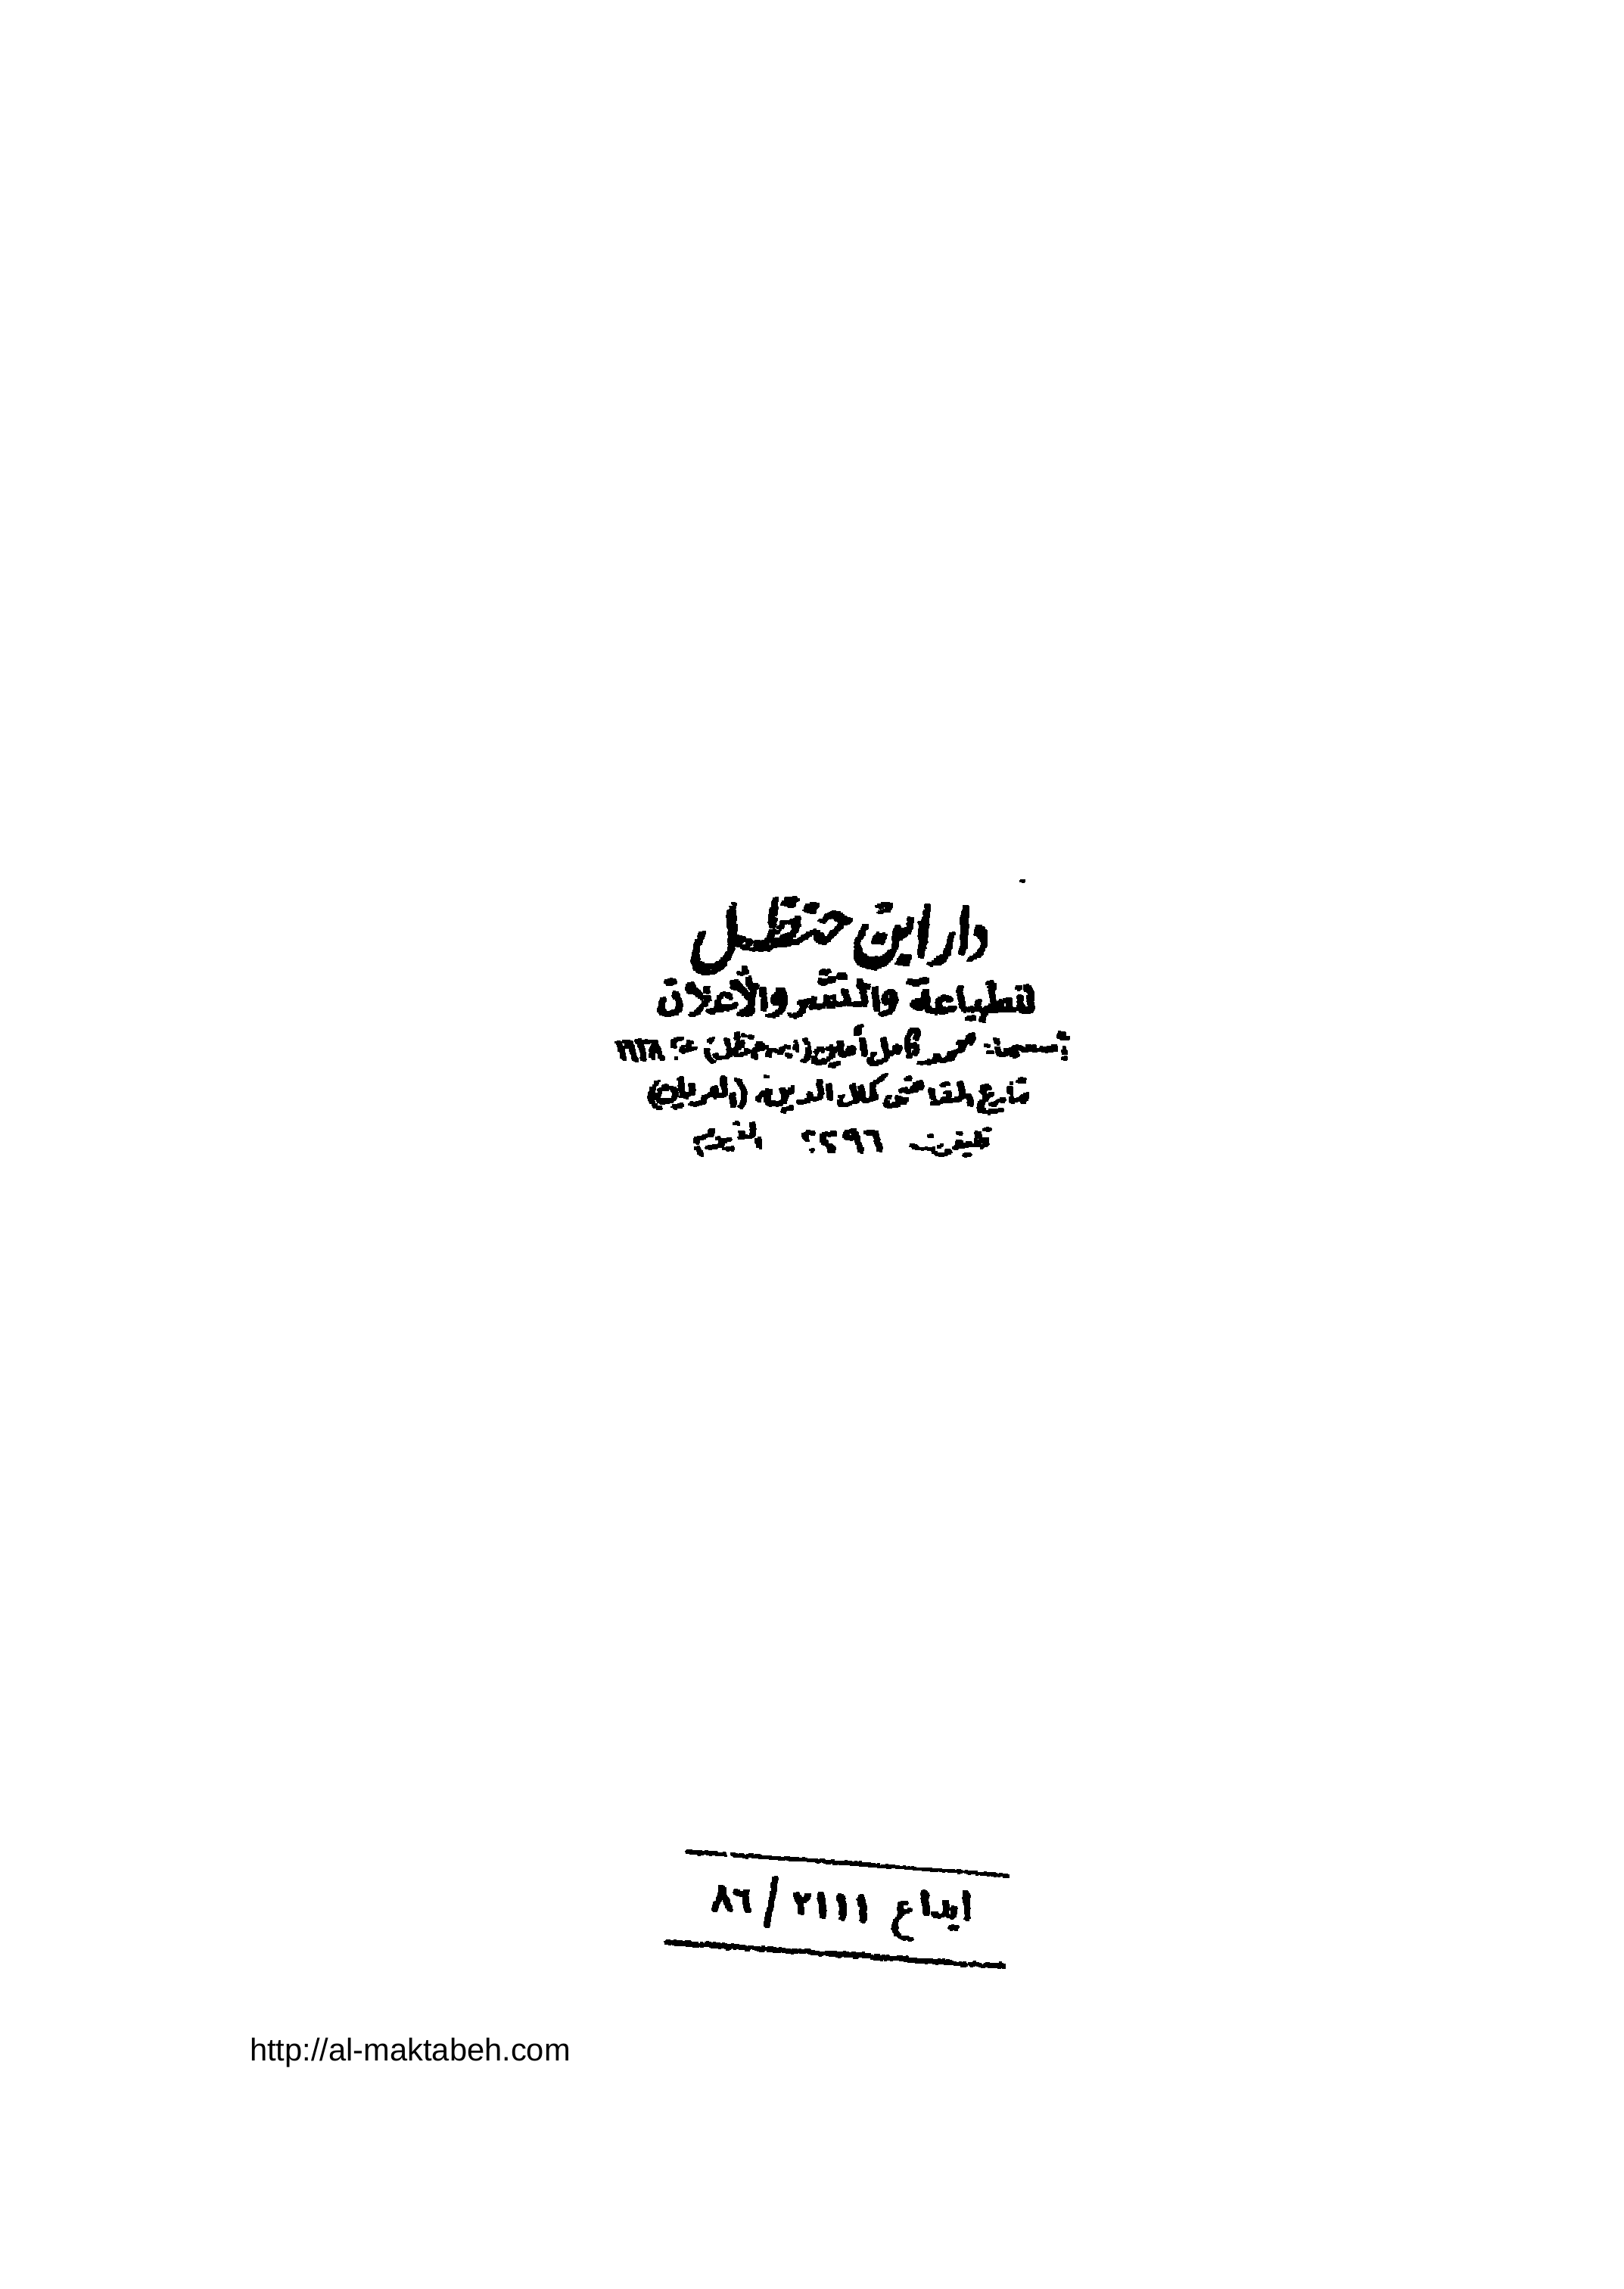 دار ابن حنظل
للطباعة والنشر والأعلان
أسسها: محمد كامل أمين (ابن حنظل) ١٩٣٨
شارع القاضى كمال الدين
تليفون الفيوم
ايداع ٢١١١ / ٨٦
http://al-maktabeh.com